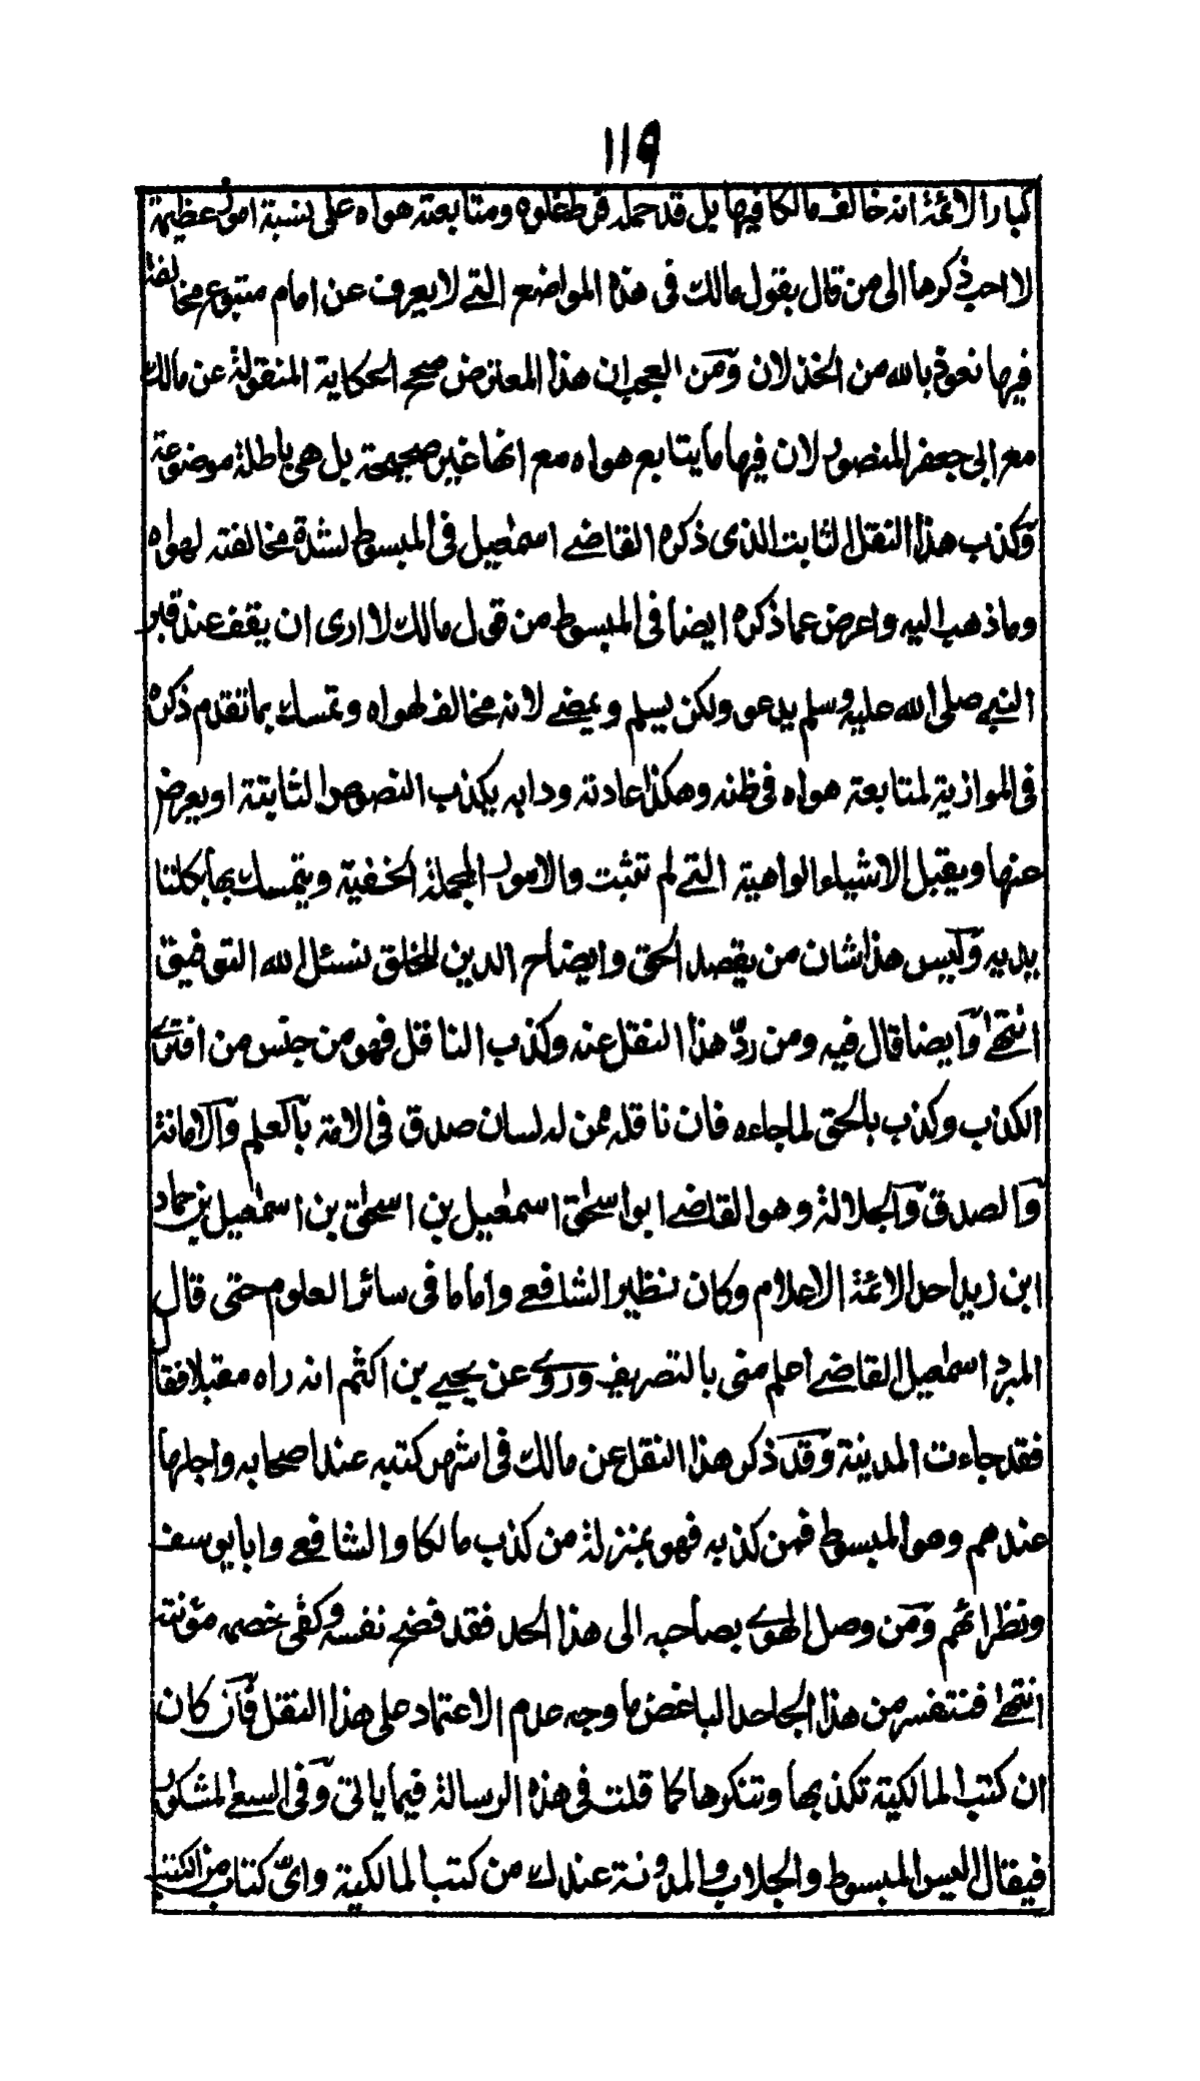 ١١٩
كبار الائمة انه خالف مالكا فيها بل قد حمله فرط غلوه ومتابعته هواه على نسبة امور عظيمة
لا احب ذكرها الى من قال بقول مالك فى هذه المواضع التى لا يعرف عن امام متبوع مخالفة
فيها نعوذ بالله من الخذلان ومن العجب ان هذا المعترض صحح الحكاية المنقولة عن مالك
مع ابى جعفر المنصور لان فيها ما يتابع هواه مع انها غير صحيحة بل هى باطلة موضوعة
وكذب هذا النقل الثابت الذى ذكره القاضى اسمعيل فى المبسوط لشدة مخالفته لهواه
وما ذهب اليه واعرض عما ذكره ايضا فى المبسوط من قول مالك لا ارى ان يقف عند قبر
النبى صلى الله عليه وسلم يدعو ولكن يسلم ويمضى لانه مخالف لهواه وتمسك بما تقدم ذكره
فى الموازية لمتابعة هواه فى ظنه وهكذا عادته ودابه يكذب النصوص الثابتة او يعرض
عنها ويقبل الاشياء الواهية التى لم تثبت والامور المجملة الخفية ويتمسك بها بكلتا
يديه وليس هذا شان من يقصد الحق وايضاح الدين للخلق نسئل الله التوفيق
انتهى وايضا قال فيه ومن ردّ هذا النقل عنه وكذب الناقل فهو من جنس من افترى
الكذب وكذب بالحق لما جاءه فان ناقله ممن له لسان صدق فى الامة بالعلم والامانة
والصدق والجلالة وهو القاضى ابو اسحق اسمعيل بن اسحق بن اسمعيل بن حماد
ابن زيد احد الائمة الاعلام وكان نظير الشافعى واماما فى سائر العلوم حتى قال
المبرد اسمعيل القاضى اعلم منى بالتصريف وروى عن يحيى بن اكثم انه راه مقبلا فقا
فقد جاءت المدينة وقد ذكر هذا النقل عن مالك فى اشهر كتبه عند اصحابه واجلها
عندهم وهو المبسوط فمن كذب به فهو بمنزلة من كذب مالكا والشافعى وابا يوسف
ونظرائهم ومن وصل الهوى بصاحبه الى هذا الحد فقد فضح نفسه وكفى خصمه مؤنته
انتهى فنتفسر من هذا الجاحد الباغض ما وجه عدم الاعتماد على هذا النقل فان كان
ان كتب المالكية تكذبها وتنكرها كما قلت فى هذه الرسالة فيما ياتى وفى السعى المشكور
فيقال اليس المبسوط والجلاب والمدونة عندك من كتب المالكية واىّ كتاب من الكتب